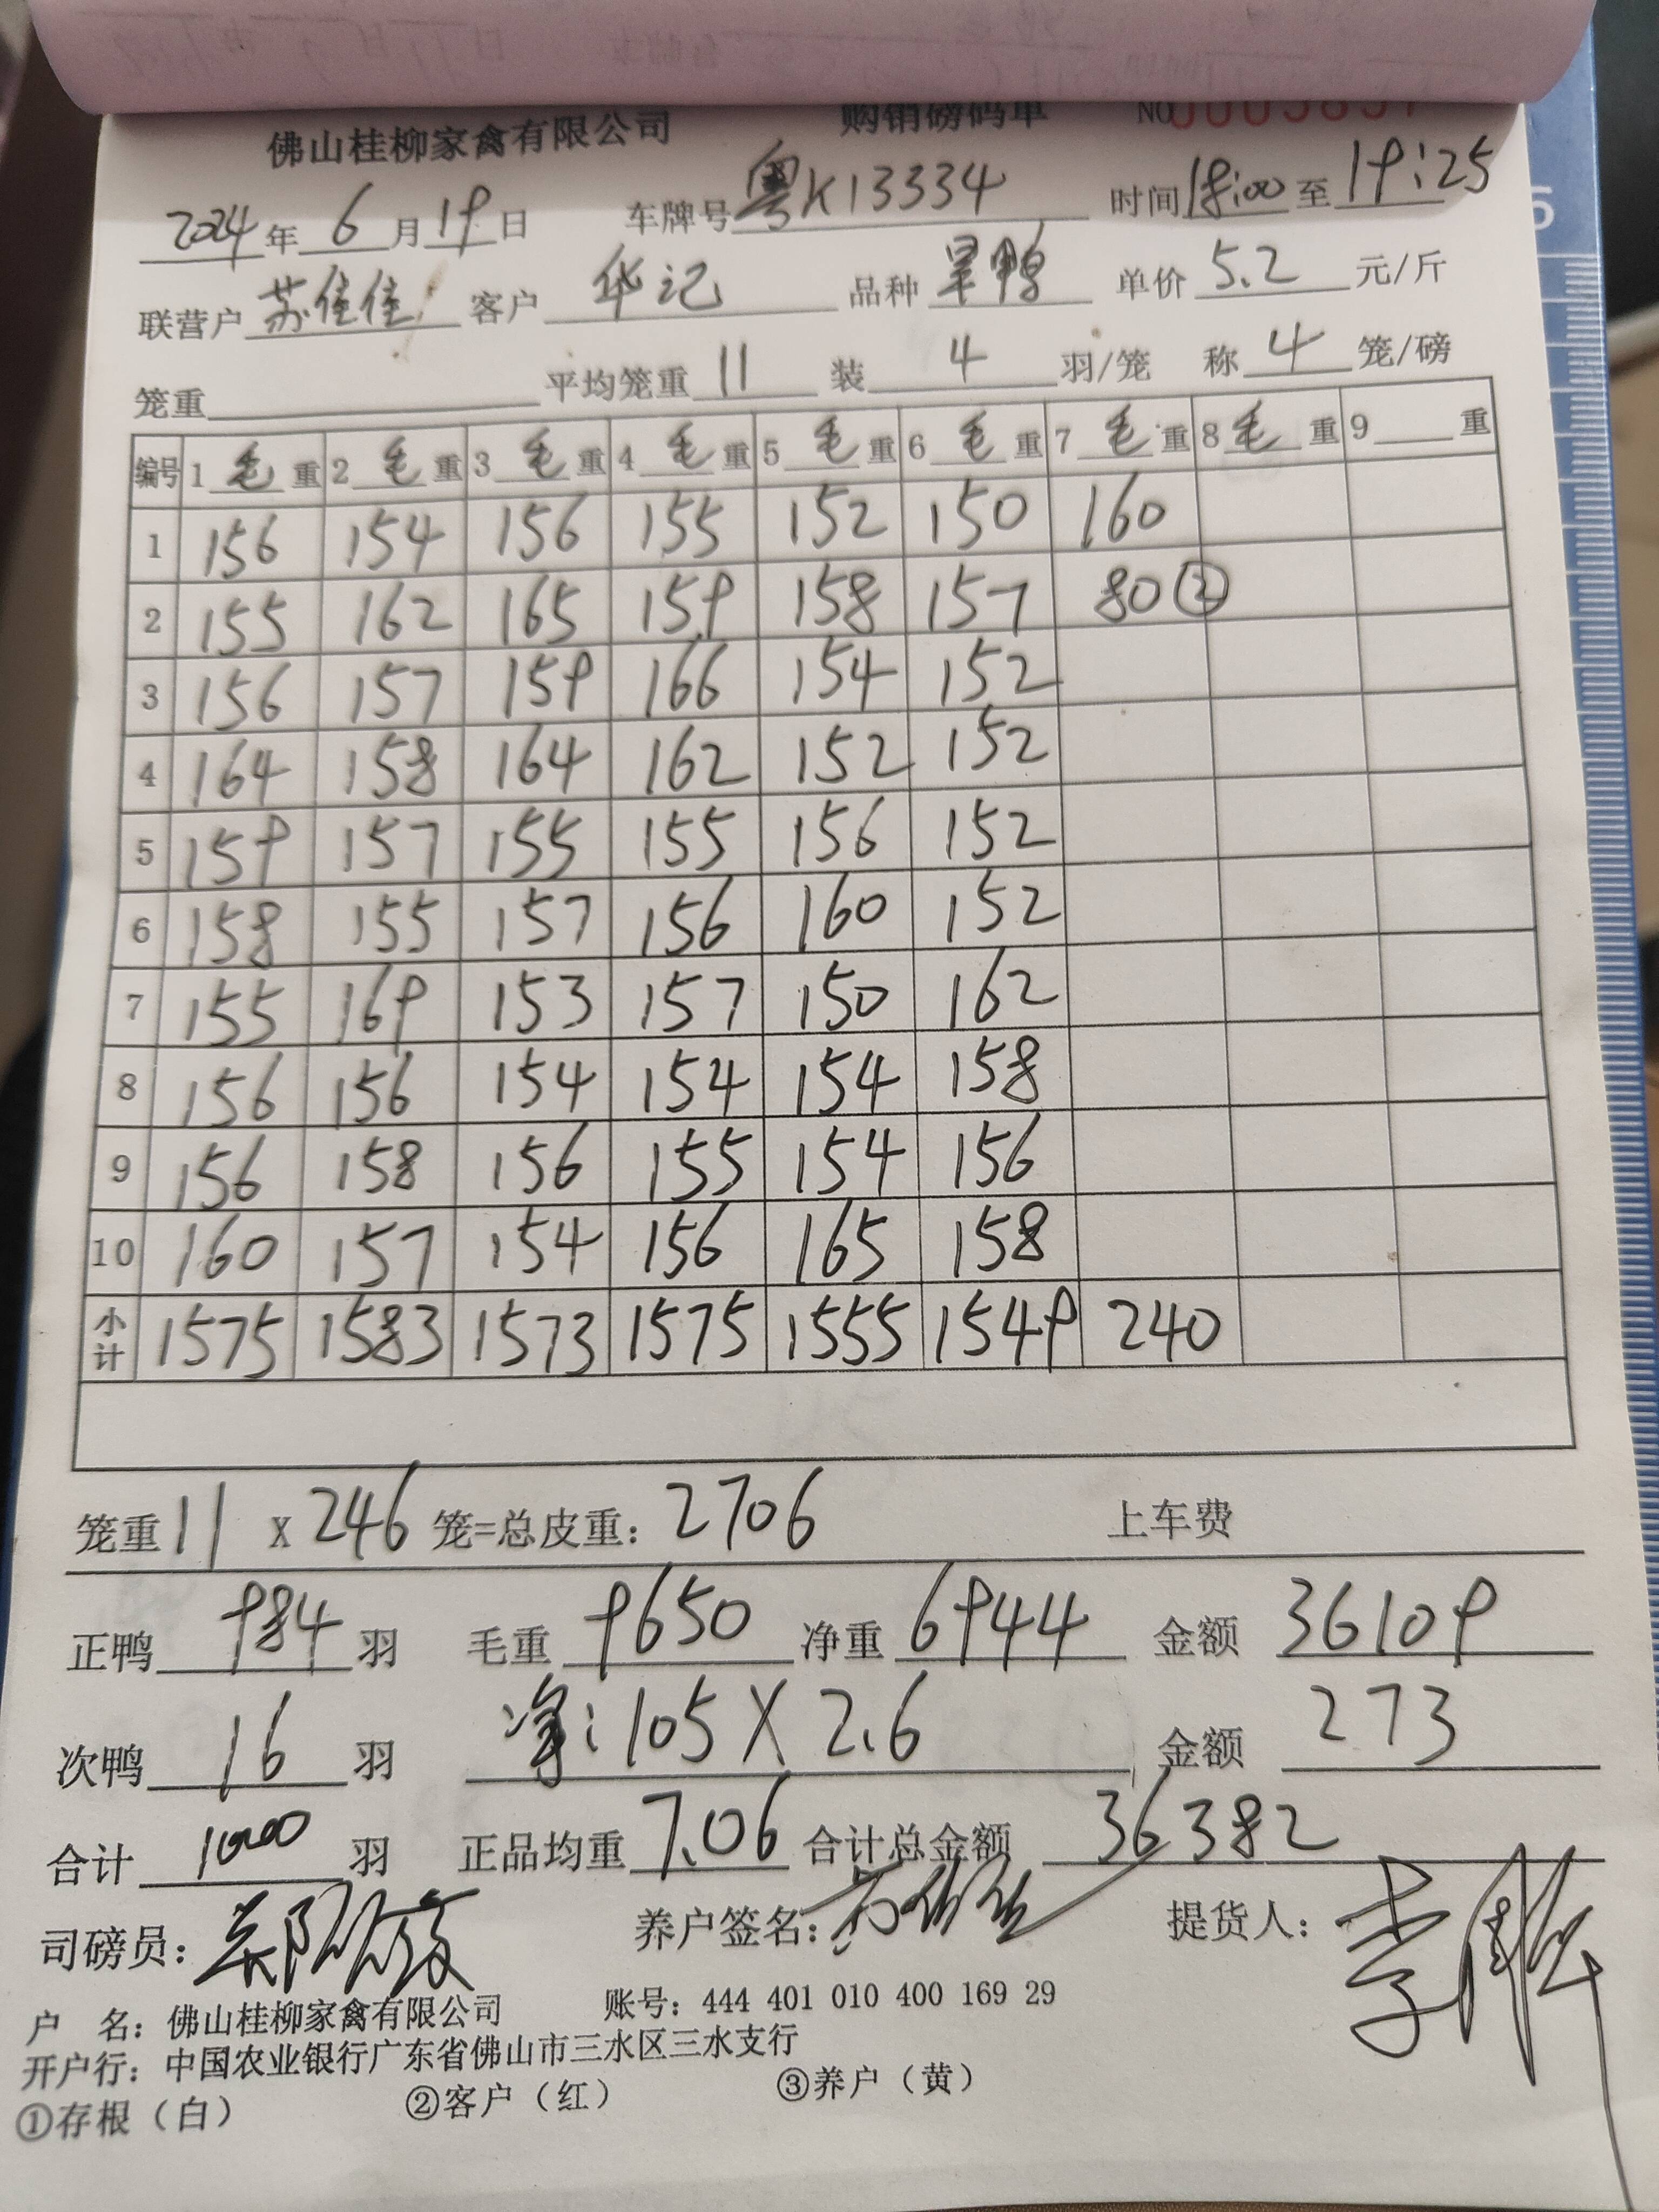 佛山桂柳家禽有限公司 购销磅码单 NO
2024年 6月 19日 车牌号 粤K13334 时间 18:00 至 19:25
联营户 苏佳佳 客户 华记 品种 旱鸭 单价 5.2 元/斤
笼重 平均笼重 11 装 4 羽/笼 称 4 笼/磅
编号 1 毛 重 2 毛 重 3 毛 重 4 毛 重 5 毛 重 6 毛 重 7 毛 重 8 毛 重 9 重
1 156 154 156 155 152 150 160
2 155 162 165 159 158 157 80 ②
3 156 157 159 166 154 152
4 164 158 164 162 152 152
5 159 157 155 155 156 152
6 158 155 157 156 160 152
7 155 169 153 157 150 162
8 156 156 154 154 154 158
9 156 158 156 155 154 156
10 160 157 154 156 165 158
小计 1575 1583 1573 1575 1555 1549 240
笼重 11 x 246 笼=总皮重: 2706 上车费
正鸭 984 羽 毛重 9650 净重 6944 金额 36109
次鸭 16 羽 净: 105 X 2.6 金额 273
合计 1000 羽 正品均重 7.06 合计总金额 36382
司磅员: 养户签名: 提货人:
户 名: 佛山桂柳家禽有限公司 账号: 444 401 010 400 169 29
开户行: 中国农业银行广东省佛山市三水区三水支行
①存根(白) ②客户(红) ③养户(黄)